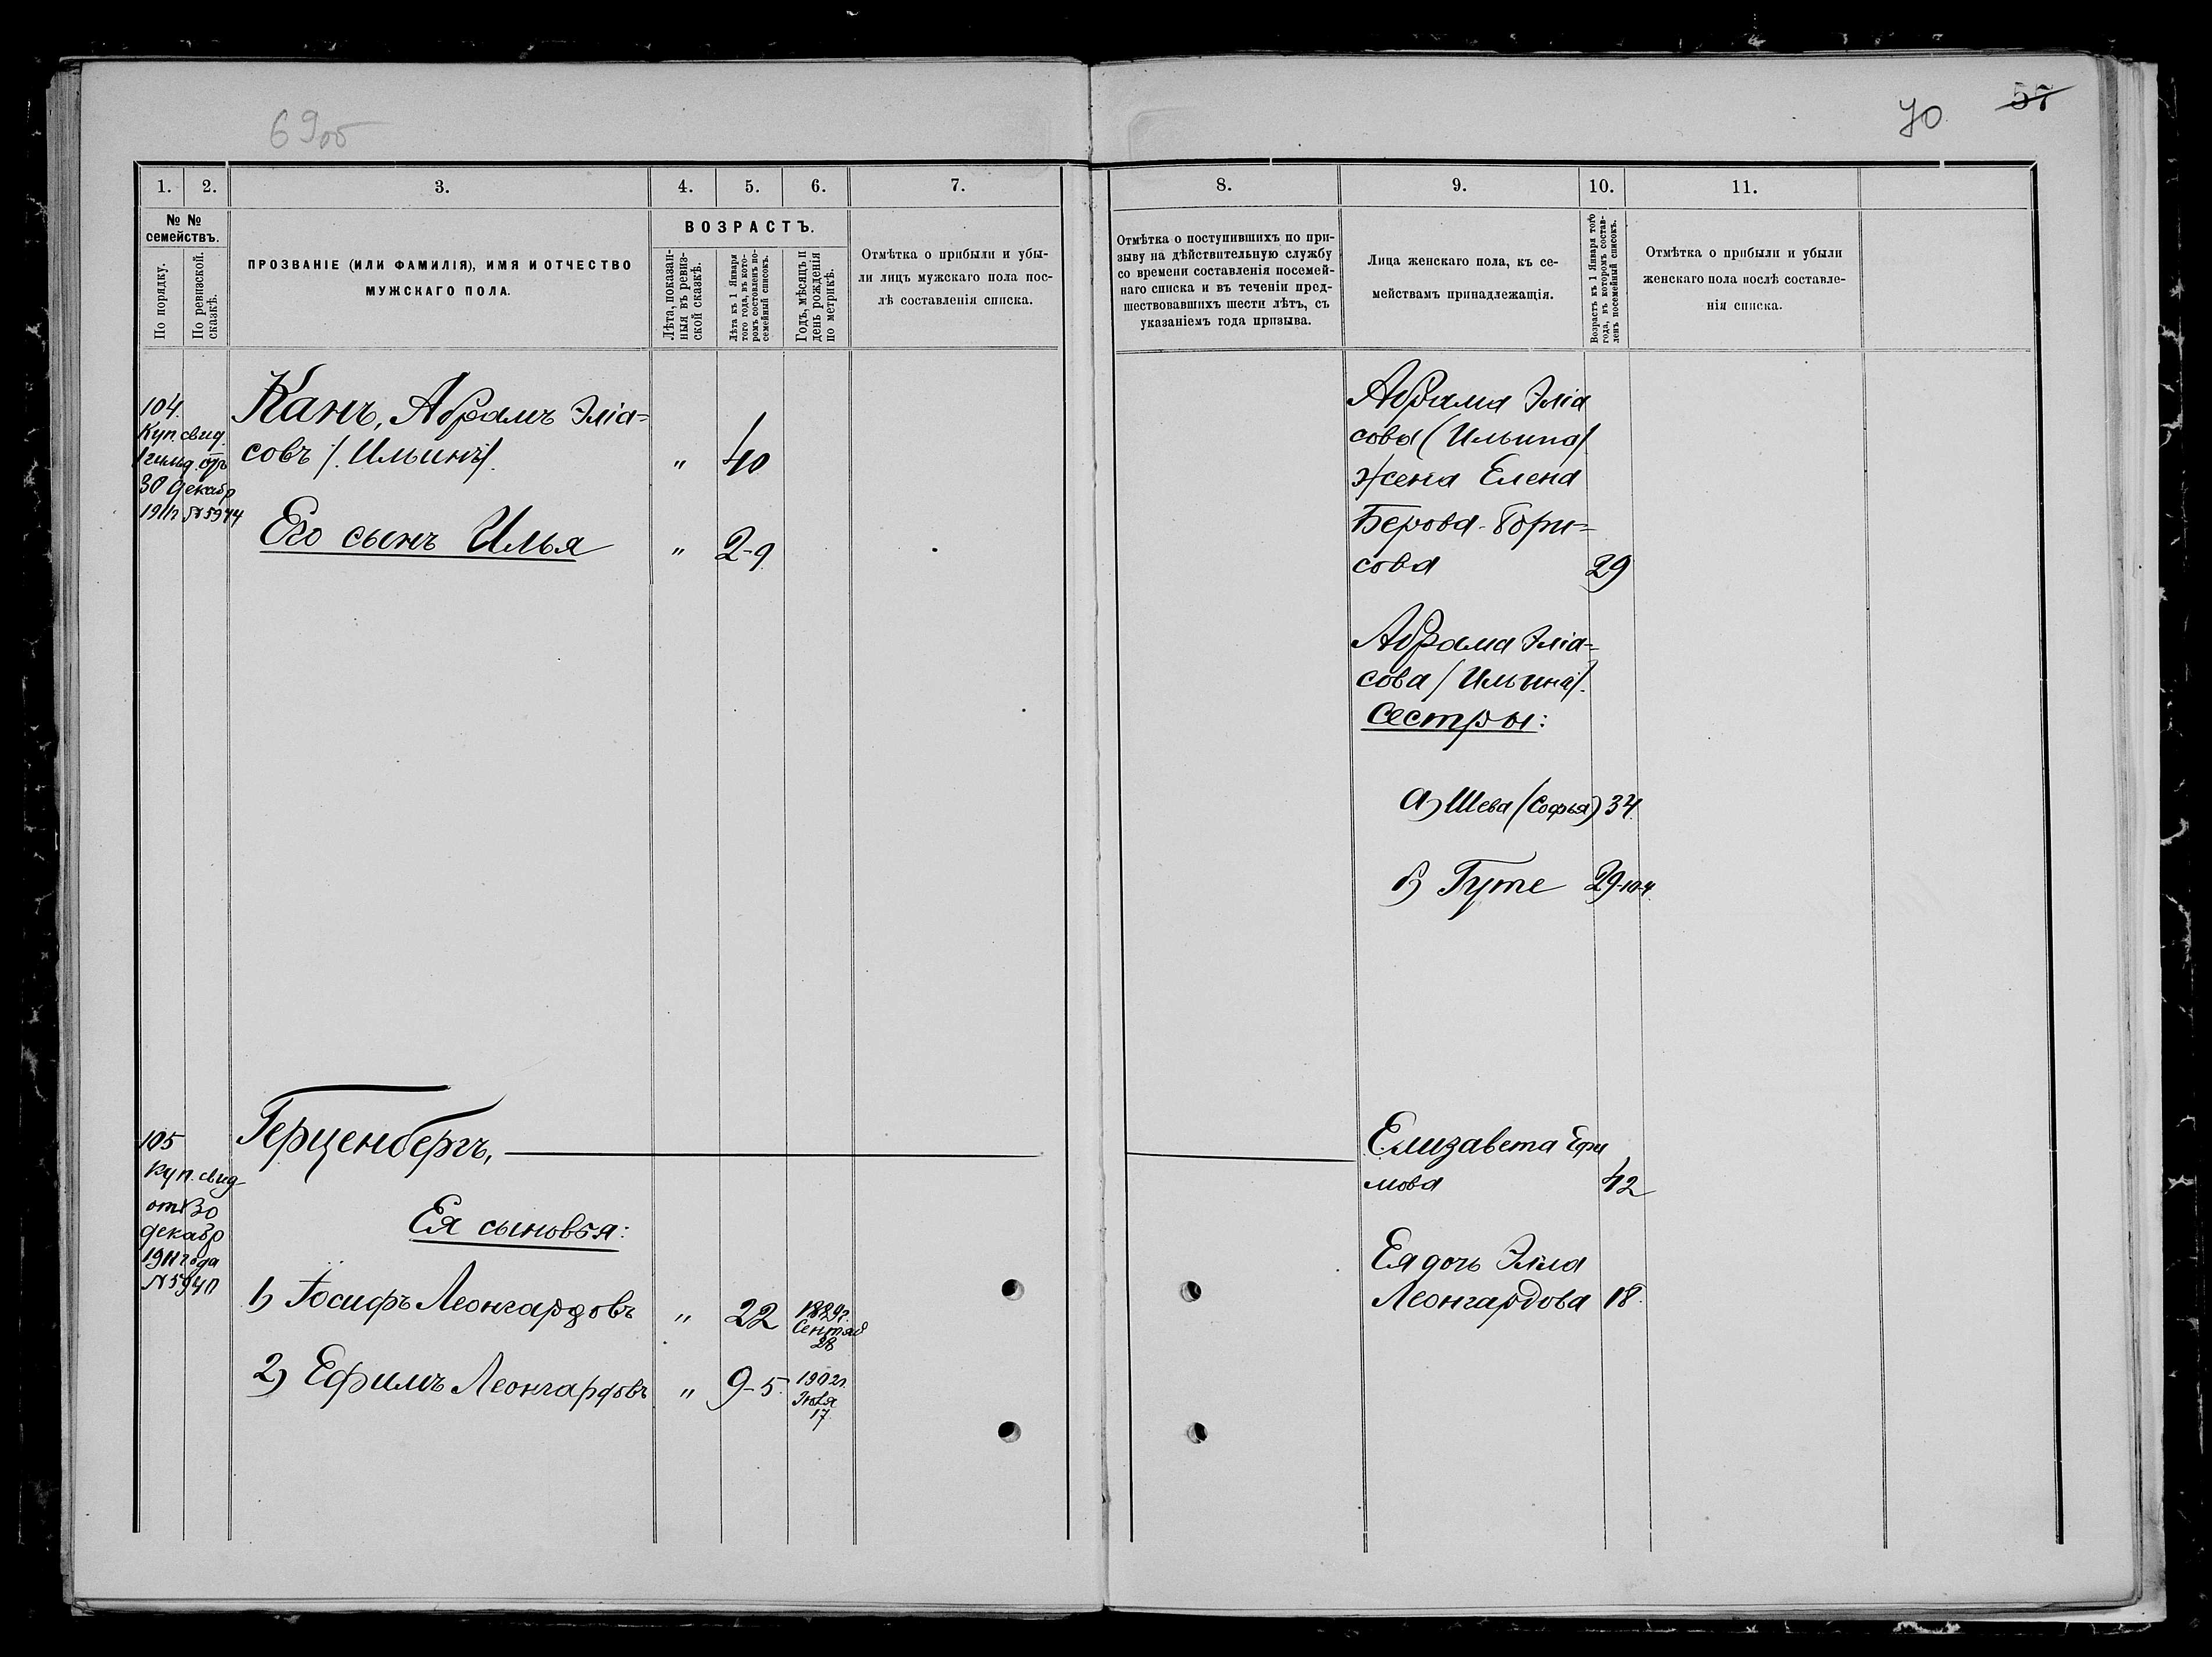 69об
70 57
1. 2. 3. 4. 5. 6. 7.
№ №
семействъ.
По порядку.
По ревизской
сказкѣ.
ПРОЗВАНІЕ (ИЛИ ФАМИЛІЯ), ИМЯ И ОТЧЕСТВО
МУЖСКАГО ПОЛА.
ВОЗРАСТЪ.
Лѣта, показан-
ныя въ ревиз-
ской сказкѣ.
Лѣта къ 1 Января
того года, въ кото-
ромъ составленъ по-
семейный списокъ.
Годъ, мѣсяцъ и
день рожденія
по метрикѣ.
Отмѣтка о прибыли и убы-
ли лицъ мужскаго пола пос-
лѣ составленія списка.
104.
Куп. свид.
1 гильд. отъ
30 декабр
1911г №5944
Канъ, Абрамъ Эліа=
совъ /Ильинъ/. " 40
Его сынъ Илья " 2-9
105
Куп. свид
отъ 30
декабр
1911 года
№5940
Герценбергъ,
Ея сыновья:
1) Іосифъ Леонгардовъ " 22 1889г.
Сентяб
28
2) Ефимъ Леонгардовъ " 9-5. 1902г.
Іюля
17.
8. 9. 10. 11.
Отмѣтка о поступившихъ по при-
зыву на дѣйствительную службу
со времени составленія посемей-
наго списка и въ теченіи пред-
шествовавшихъ шести лѣтъ, съ
указаніемъ года призыва.
Лица женскаго пола, къ се-
мействамъ принадлежащія.
Возрастъ къ 1 Января того
года, въ которомъ состав-
ленъ посемейный списокъ.
Отмѣтка о прибыли и убыли
женскаго пола послѣ составле-
нія списка.
Абрама Эліа
сова (Ильина)
жена Елена
Берова-Бори=
сова 29
Абрама Эліа=
сова /Ильина/.
Сестры:
а) Шева (Софья) 34.
б) Гуте 29-10-4.
Елизавета Ефи
мова 42
Ея дочь Элла
Леонгардова 18.